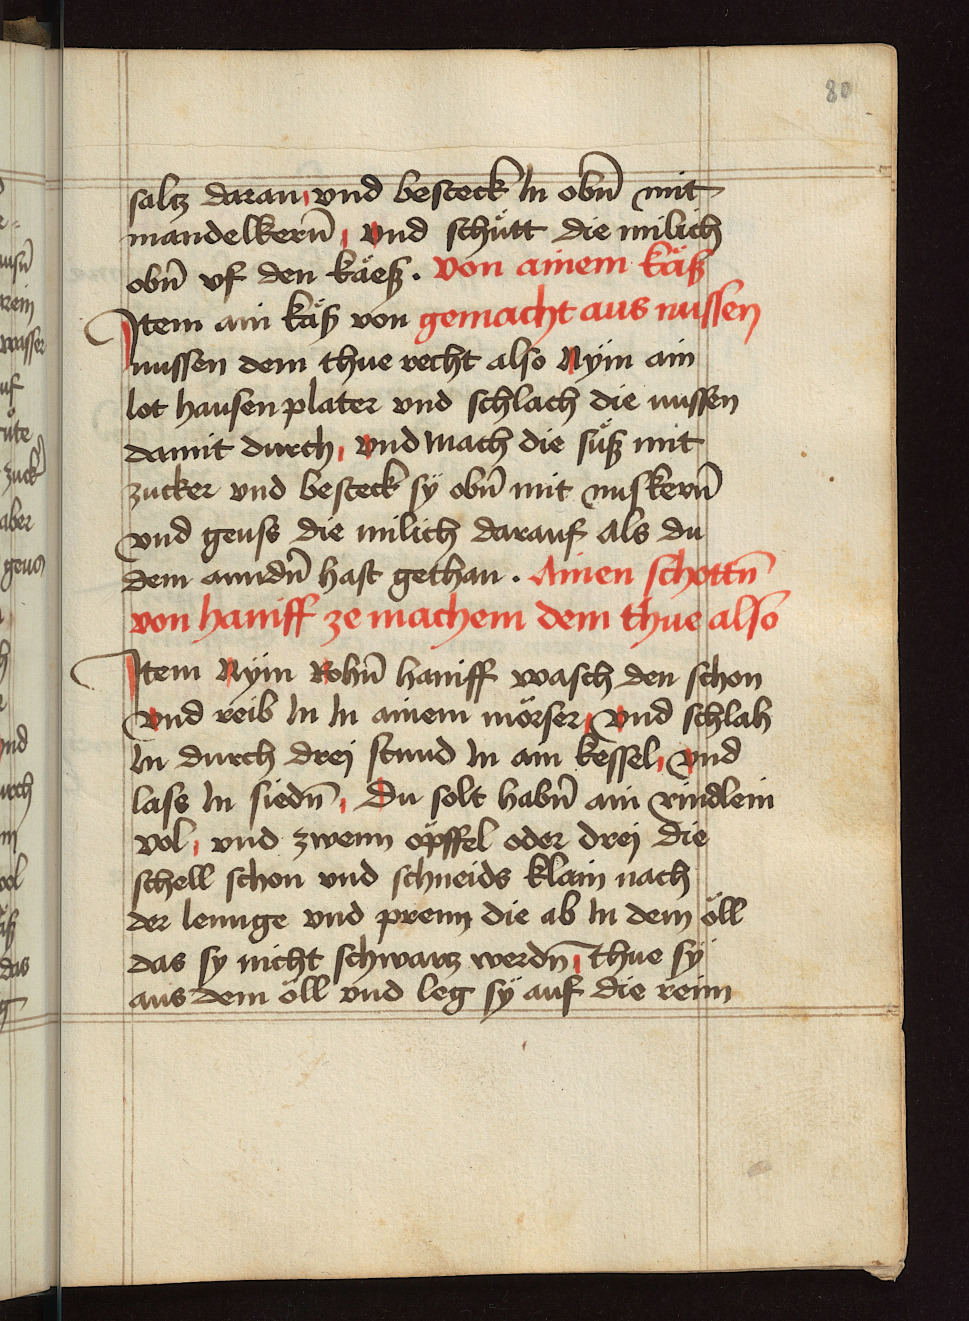 80
saltz daran vnd besteck In obn̄ mit
mandelkern̄ vnd schütt die milich
obn̄ vf den käeß . Von ainem käß
Item ain käß von gemacht aus nussen
nussen dem thue recht also Nym ain
lot hausenplater vnd schlach die nussen
damit durch vnd mach die süß mit
zucker vnd besteck sÿ obn̄ mit nuskern̄
vnd geuss die milich darauf als du
dem anndn̄ hast gethan . Ainen schottn̄
von haniff ze machem dem thue also
Item Nÿm Rohn̄ haniff wasch den schon
vnd reib In In ainem mörser vnd schlah
In durch drej stund In ain kessel vnd
lass In siedn̄ Du solt habn̄ ain rindlein
vol vnd zwenn öpffel oder drej die
schell schon vnd schneids klain nach
der lennge vnd prenn die ab In dem öll
das sy nicht schwartz werdn̄ thue sÿ
aus dem öll vnd leg sÿ auf die reim